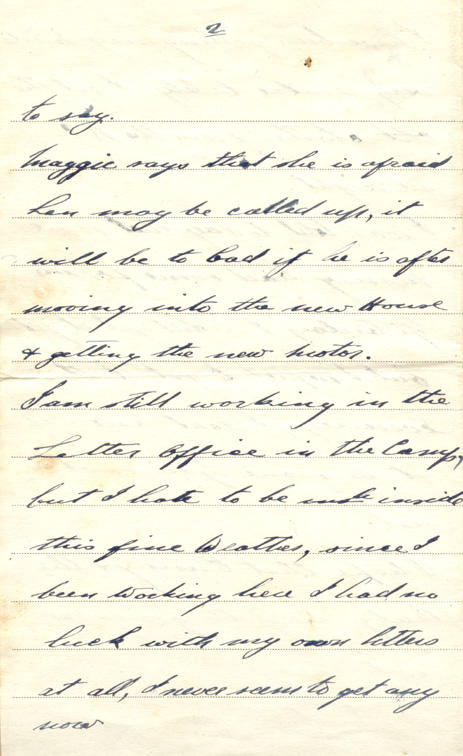 2
to say.
Maggie says that she is afraid
Len may be called up, it
will be to bad if he is after
moving into the new House
& getting the new motor.
I am still working in the
Letter Office in the Camp,
but I hate to be inside
this fine Weather, since I
been working here I had no
luck with my own letters
at all, I never seem to get any
now